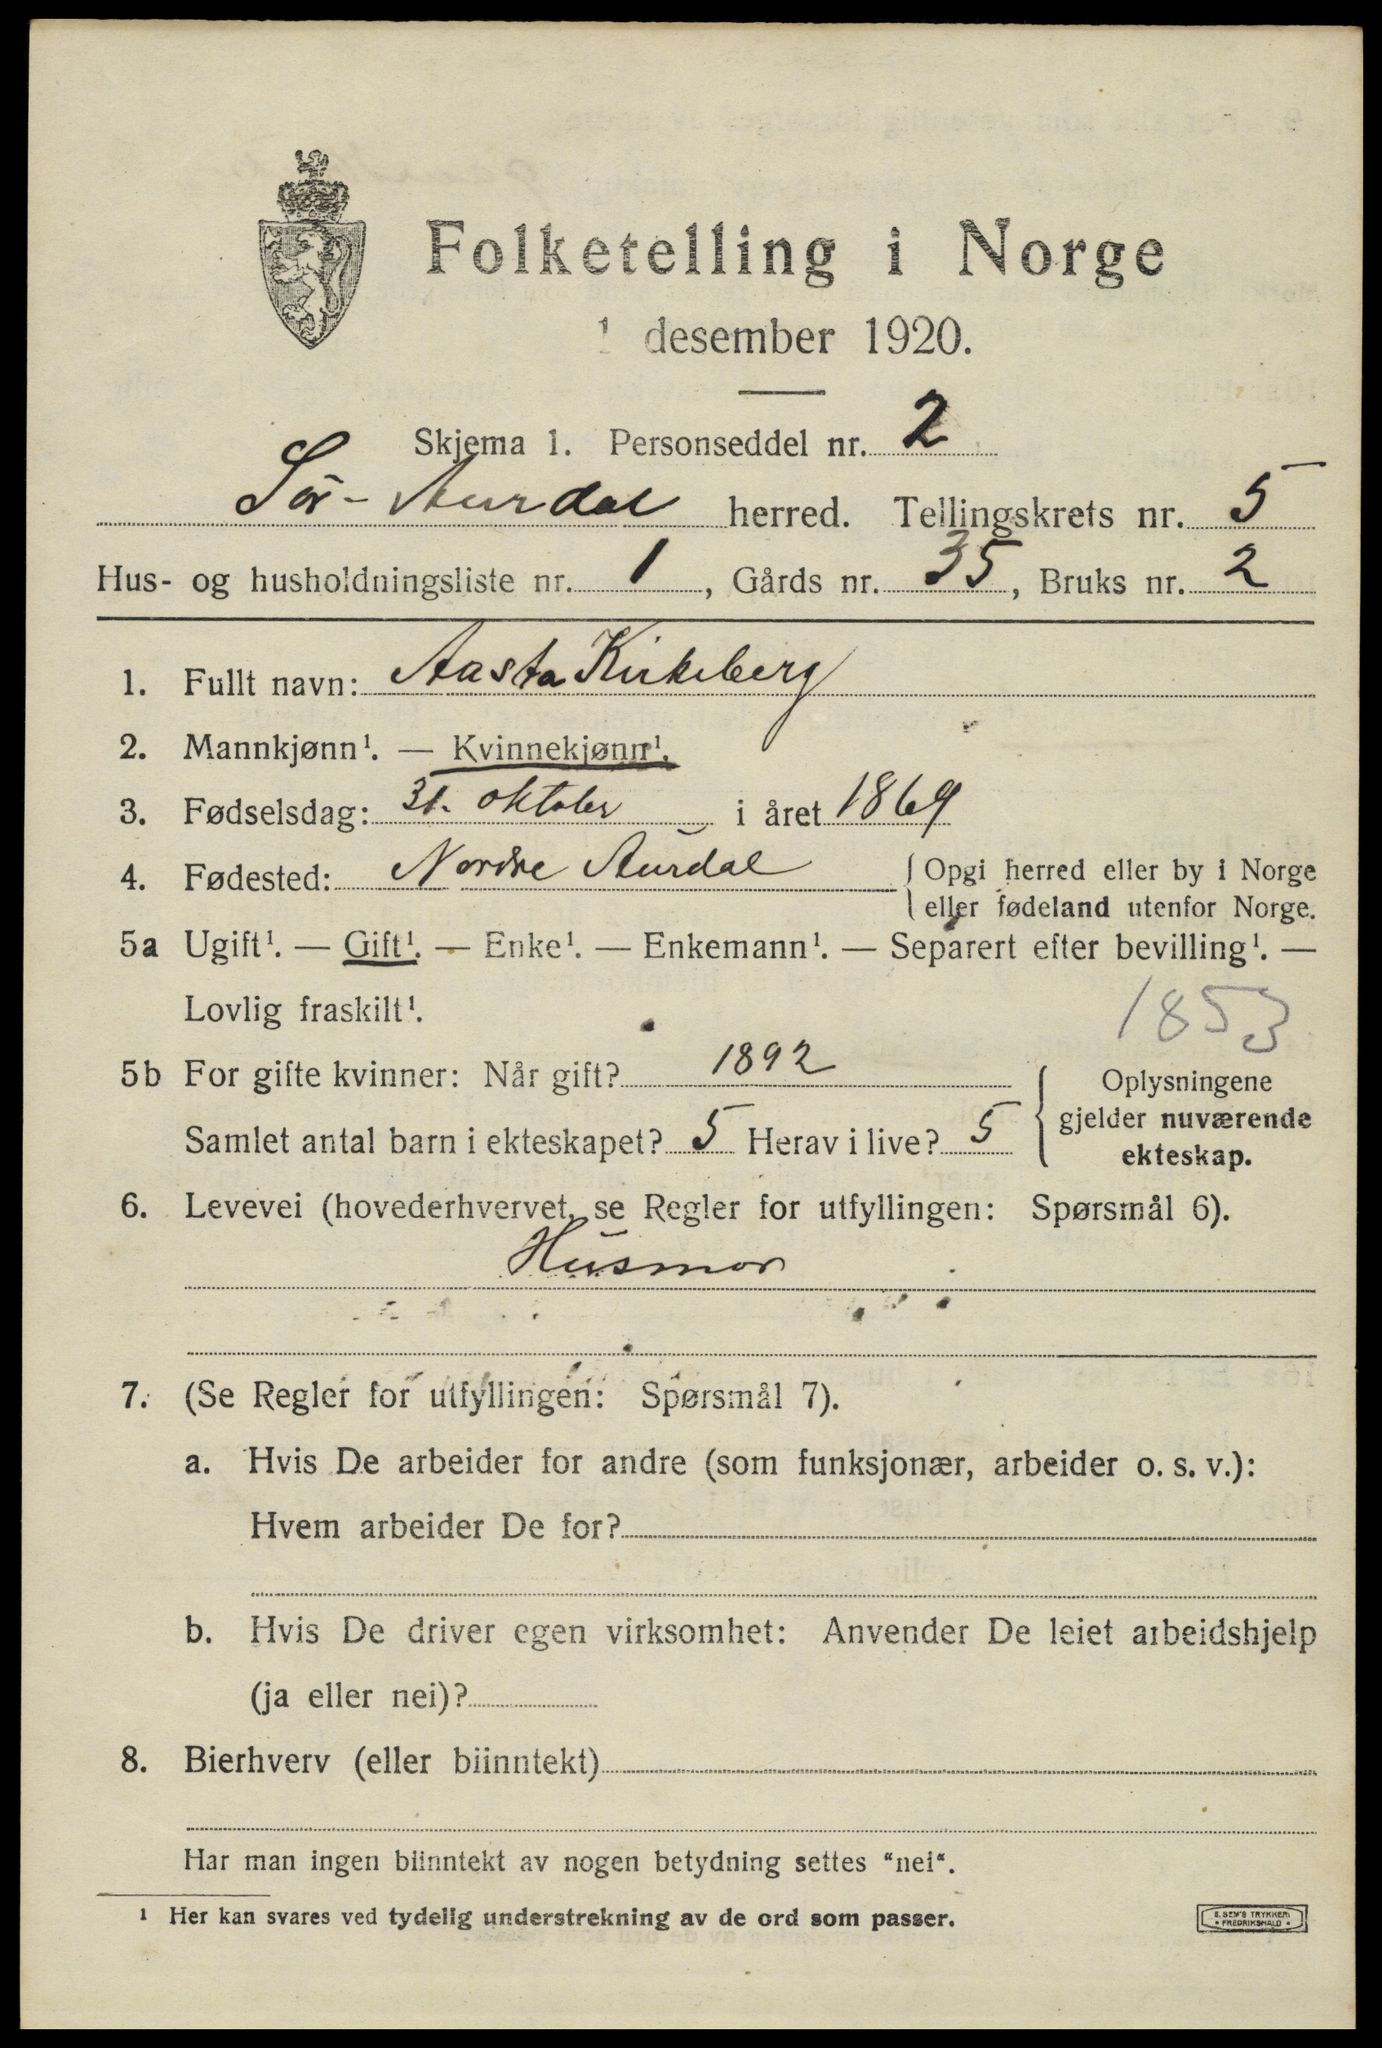 Folketelling i Norge
1 desember 1920.
Skjema 1. Personseddel nr. 2
Sör-Aurdal herred. Tellingskrets nr. 5
Hus- og husholdningsliste nr. 1, Gårds nr. 35, Bruks nr. 2
1. Fullt navn: Aasta Kirkeberg
2. Mannkjønn¹. — Kvinnekjønn¹.
3. Fødselsdag: 31. oktober i året 1869
4. Fødested: Nordre Aurdal { Opgi herred eller by i Norge
eller fødeland utenfor Norge.
5a Ugift¹. — Gift¹. — Enke¹. — Enkemann¹. — Separert efter bevilling¹. —
Lovlig fraskilt¹.
1853
5b For gifte kvinner: Når gift? 1892
Samlet antal barn i ekteskapet? 5 Herav i live? 5
{ Oplysningene
gjelder nuværende
ekteskap.
6. Levevei (hovederhvervet, se Regler for utfyllingen: Spørsmål 6).
Husmor
7. (Se Regler for utfyllingen: Spørsmål 7).
a. Hvis De arbeider for andre (som funksjonær, arbeider o. s. v.):
Hvem arbeider De for?
b. Hvis De driver egen virksomhet: Anvender De leiet arbeidshjelp
(ja eller nei)?
8. Bierhverv (eller biinntekt)
Har man ingen biinntekt av nogen betydning settes "nei".
¹ Her kan svares ved tydelig understrekning av de ord som passer.
E. SEM'S TRYKKERI
• FREDRIKSHALD •